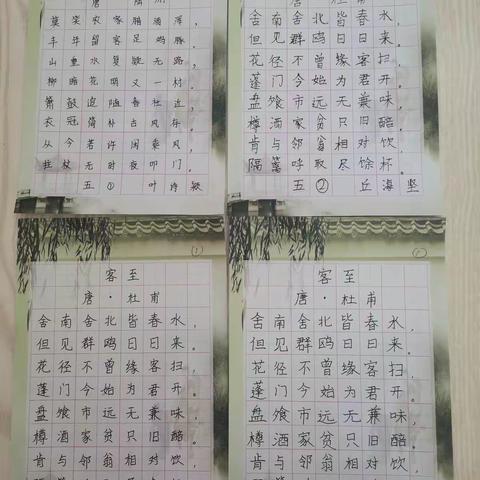 莫笑农家腊酒浑,
丰年留客足鸡豚。
山重水复疑无路,
柳暗花明又一村。
箫鼓追随春社近,
衣冠简朴古风存。
从今若许闲乘月,
拄杖无时夜叩门。
五① 叶诗
舍南舍北皆春水,
但见群鸥日日来。
花径不曾缘客扫,
蓬门今始为君开。
盘飧市远无兼味,
樽酒家贫只旧醅。
肯与邻翁相对饮,
隔篱呼取尽馀杯。
五② 丘海坚
客至
唐·杜甫
舍南舍北皆春水,
但见群鸥日日来。
花径不曾缘客扫,
蓬门今始为君开。
盘飧市远无兼味,
樽酒家贫只旧醅。
肯与邻翁相对饮,
客至
唐·杜甫
舍南舍北皆春水,
但见群鸥日日来。
花径不曾缘客扫,
蓬门今始为君开。
盘飧市远无兼味,
樽酒家贫只旧醅。
肯与邻翁相对饮,